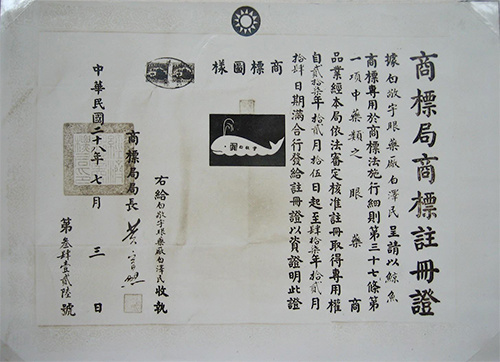 商標局商標註冊證
據白敬宇眼藥廠白澤民呈請以鯨魚
商標專用於商標法施行細則第三十七條第
一項中藥類之眼藥商
品業經本局依法審定核准註冊取得專用權
自貳拾柒年拾貳月拾伍日起至肆拾柒年拾貳月
拾肆日期滿合行發給註冊證以資證明此證
商標圖樣
右給白敬宇眼藥廠白澤民收執
商標局局長
中華民國二十八年七月三日
第叁肆壹貳陸號